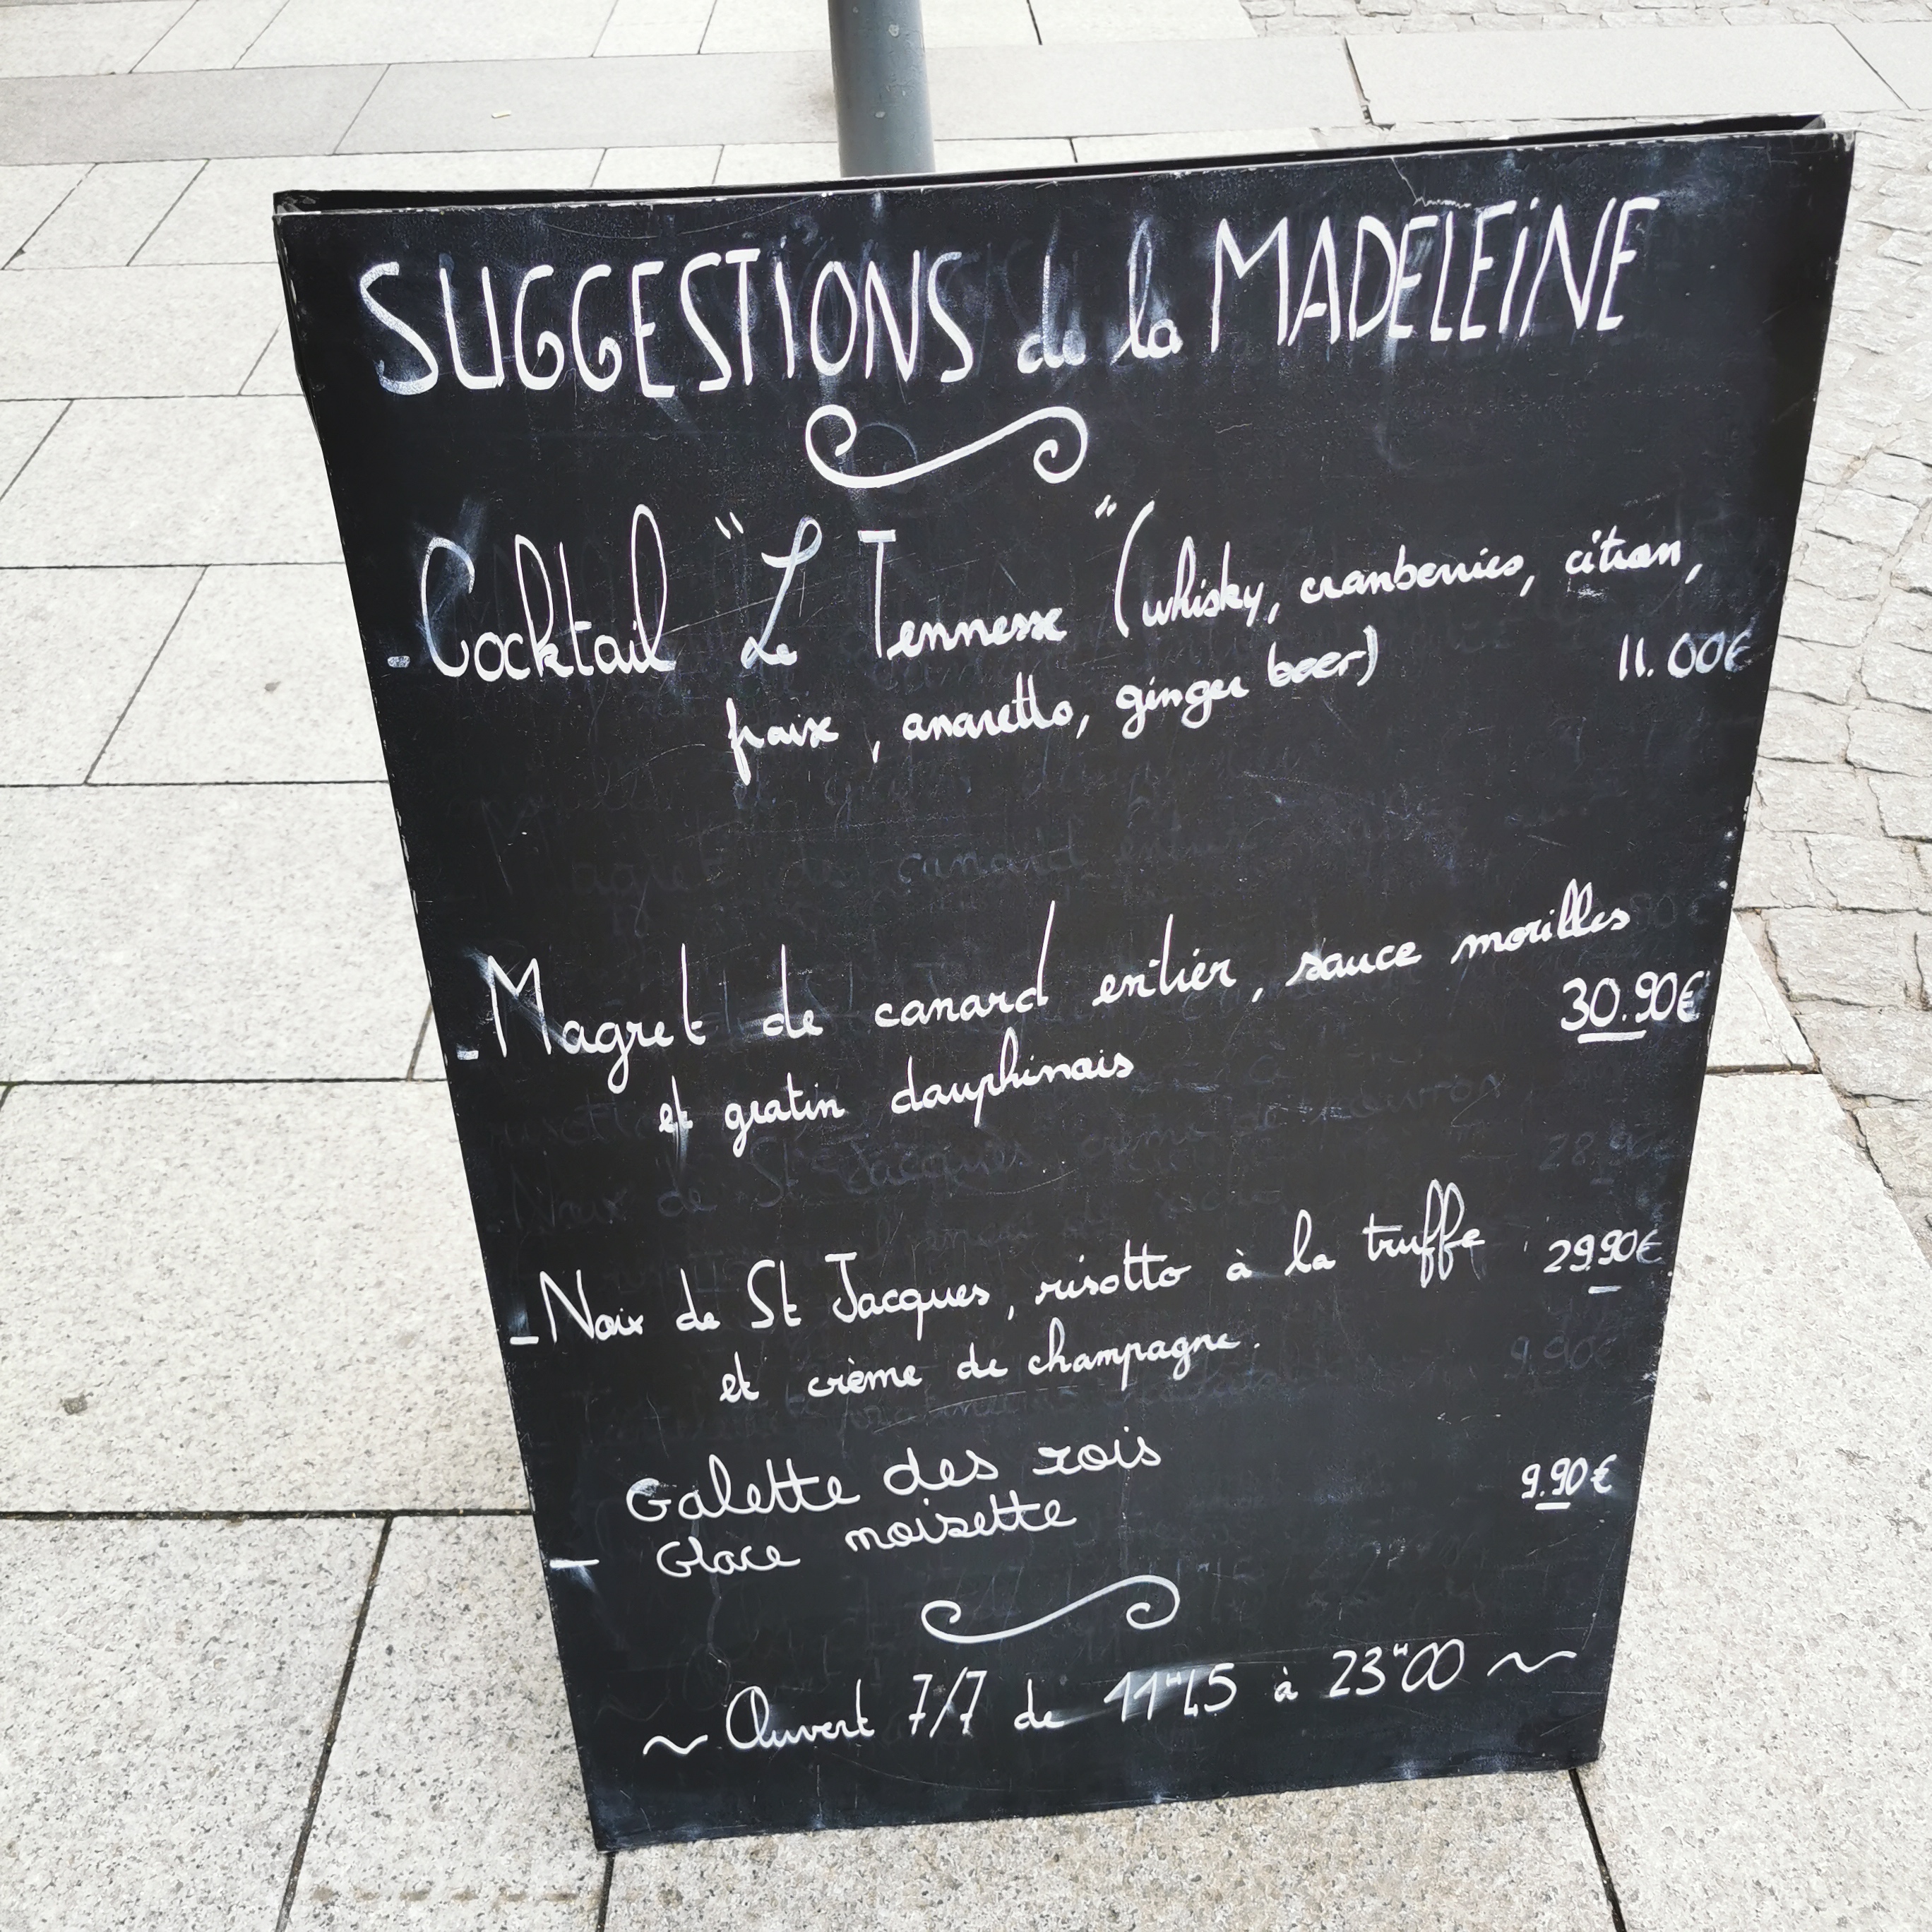 SUGGESTIONS de la MADELEINE
- Cocktail "Le Tennesse" (whisky, cranberries, citron,
fraise, amaretto, ginger beer) 11.00€
- Magret de canard entier, sauce morilles
et gratin dauphinois 30.90€
- Noix de St Jacques, risotto à la truffe 29.90€
et crème de champagne.
Galette des rois 9.90€
- Glace noisette
~ Ouvert 7/7 de 11H45 à 23H00 ~